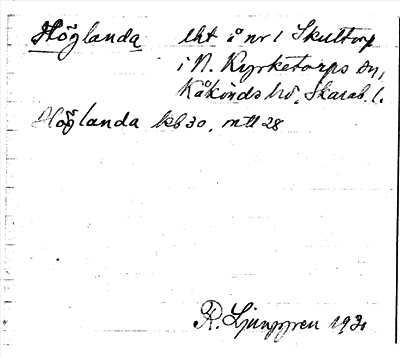 Höglanda lht å nr 1 Skultorp
i N. Kyrketorps sn,
Kåkinds hd, Skarab. l.
Höglanda kb 30, mtl 28
R. Ljunggren 193